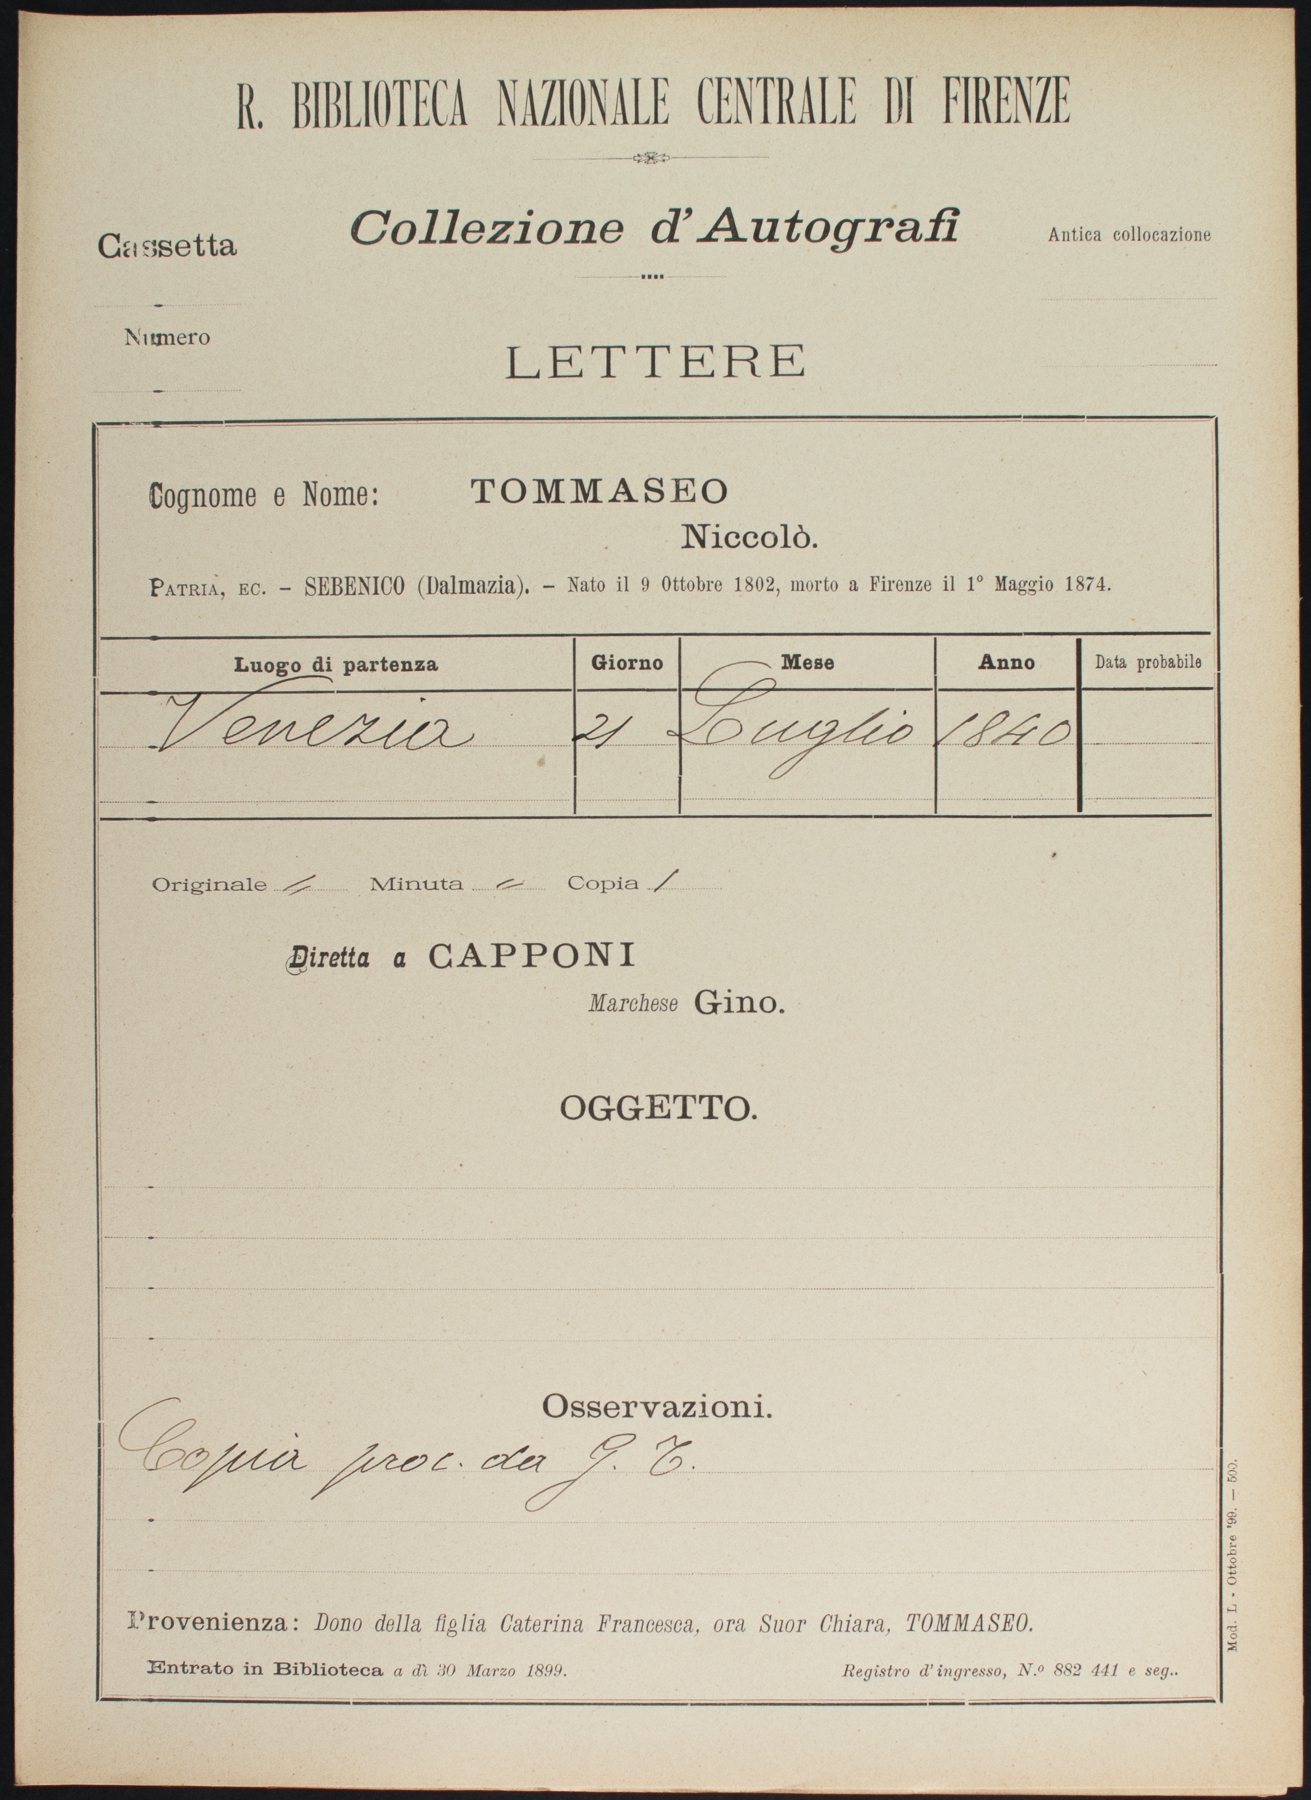 R. BIBLIOTECA NAZIONALE CENTRALE DI FIRENZE
Cassetta
Collezione d'Autografi
Antica collocazione
Numero
LETTERE
Cognome e Nome: TOMMASEO
Niccolò.
PATRIA, EC. – SEBENICO (Dalmazia). – Nato il 9 Ottobre 1802, morto a Firenze il 1º Maggio 1874.
Luogo di partenza Giorno Mese Anno Data probabile
Venezia 21 Luglio 1840
Originale // Minuta = Copia /
Diretta a CAPPONI
Marchese Gino.
OGGETTO.
Osservazioni.
Copia proc. da G. T.
Provenienza: Dono della figlia Caterina Francesca, ora Suor Chiara, TOMMASEO.
Entrato in Biblioteca a dì 30 Marzo 1899. Registro d'ingresso, N.º 882 441 e seg..
Mod. L - Ottobre '99. — 500.